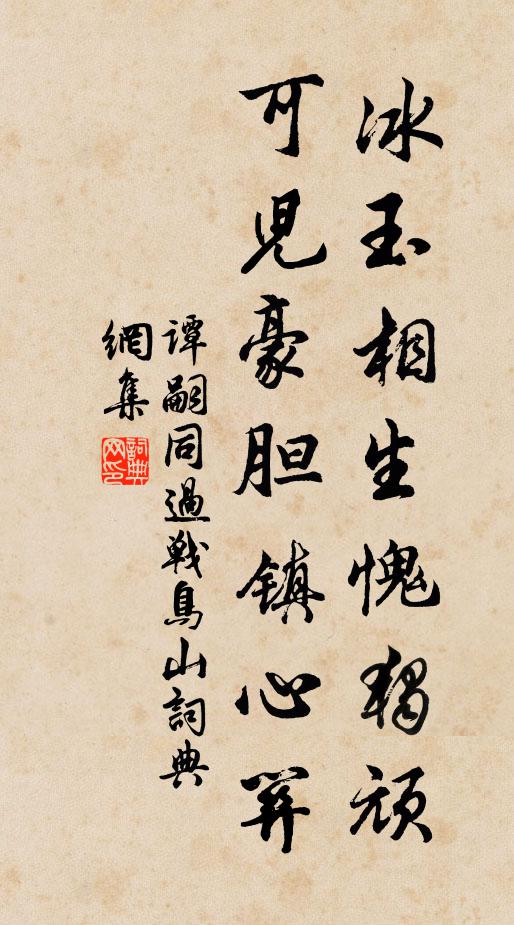 冰玉相生愧獨頑
可兒豪胆镇心關
谭嗣同過戰鳥山詞典
網集
詞典
网印